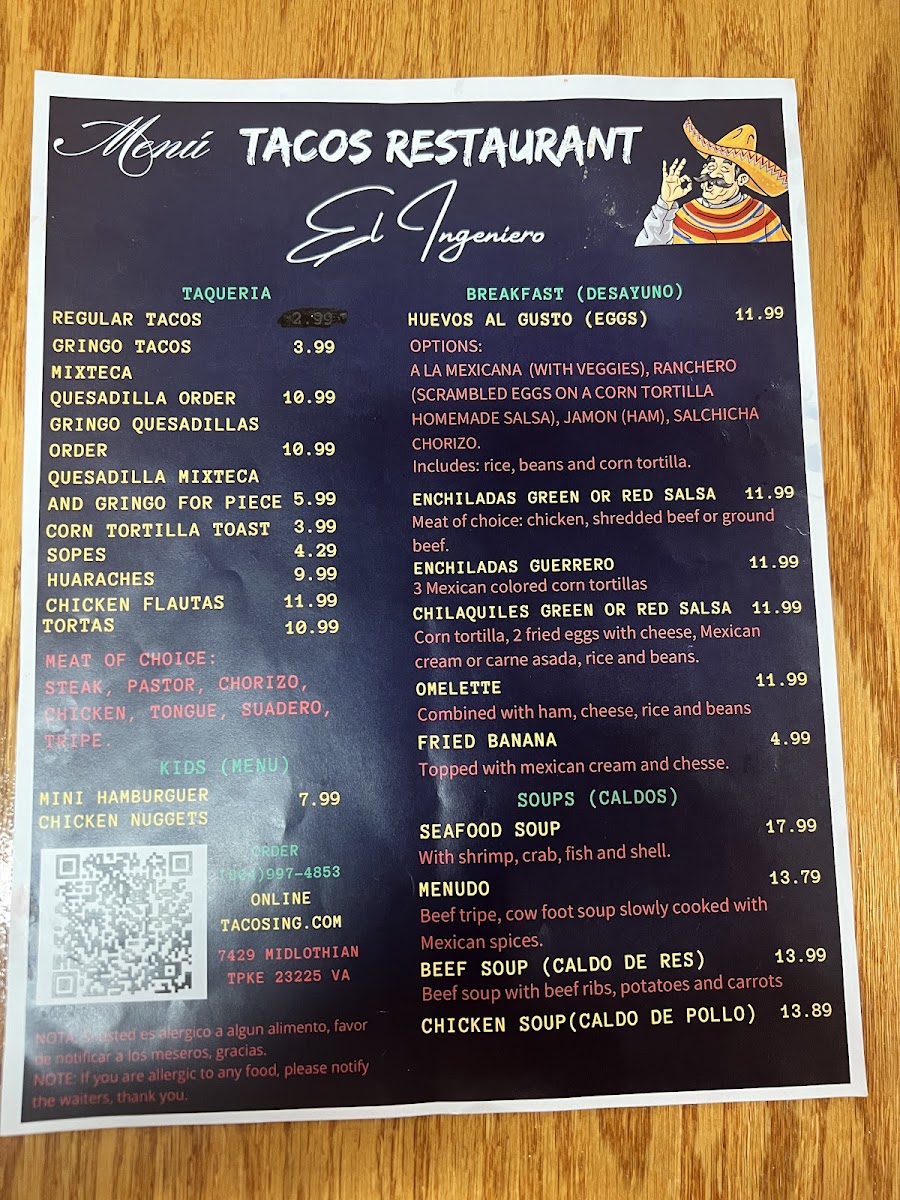 Menú TACOS RESTAURANT
El Ingeniero
TAQUERIA
REGULAR TACOS 2.99
GRINGO TACOS 3.99
MIXTECA
QUESADILLA ORDER 10.99
GRINGO QUESADILLAS
ORDER 10.99
QUESADILLA MIXTECA
AND GRINGO FOR PIECE 5.99
CORN TORTILLA TOAST 3.99
SOPES 4.29
HUARACHES 9.99
CHICKEN FLAUTAS 11.99
TORTAS 10.99
MEAT OF CHOICE:
STEAK, PASTOR, CHORIZO,
CHICKEN, TONGUE, SUADERO,
TRIPE.
KIDS (MENU)
MINI HAMBURGUER 7.99
CHICKEN NUGGETS
ORDER
(804)997-4853
ONLINE
TACOSING.COM
7429 MIDLOTHIAN
TPKE 23225 VA
NOTA: Si usted es alergico a algun alimento, favor
de notificar a los meseros, gracias.
NOTE: If you are allergic to any food, please notify
the waiters, thank you.
BREAKFAST (DESAYUNO)
HUEVOS AL GUSTO (EGGS) 11.99
OPTIONS:
A LA MEXICANA (WITH VEGGIES), RANCHERO
(SCRAMBLED EGGS ON A CORN TORTILLA
HOMEMADE SALSA), JAMON (HAM), SALCHICHA
CHORIZO.
Includes: rice, beans and corn tortilla.
ENCHILADAS GREEN OR RED SALSA 11.99
Meat of choice: chicken, shredded beef or ground
beef.
ENCHILADAS GUERRERO 11.99
3 Mexican colored corn tortillas
CHILAQUILES GREEN OR RED SALSA 11.99
Corn tortilla, 2 fried eggs with cheese, Mexican
cream or carne asada, rice and beans.
OMELETTE 11.99
Combined with ham, cheese, rice and beans
FRIED BANANA 4.99
Topped with mexican cream and chesse.
SOUPS (CALDOS)
SEAFOOD SOUP 17.99
With shrimp, crab, fish and shell.
MENUDO 13.79
Beef tripe, cow foot soup slowly cooked with
Mexican spices.
BEEF SOUP (CALDO DE RES) 13.99
Beef soup with beef ribs, potatoes and carrots
CHICKEN SOUP(CALDO DE POLLO) 13.89